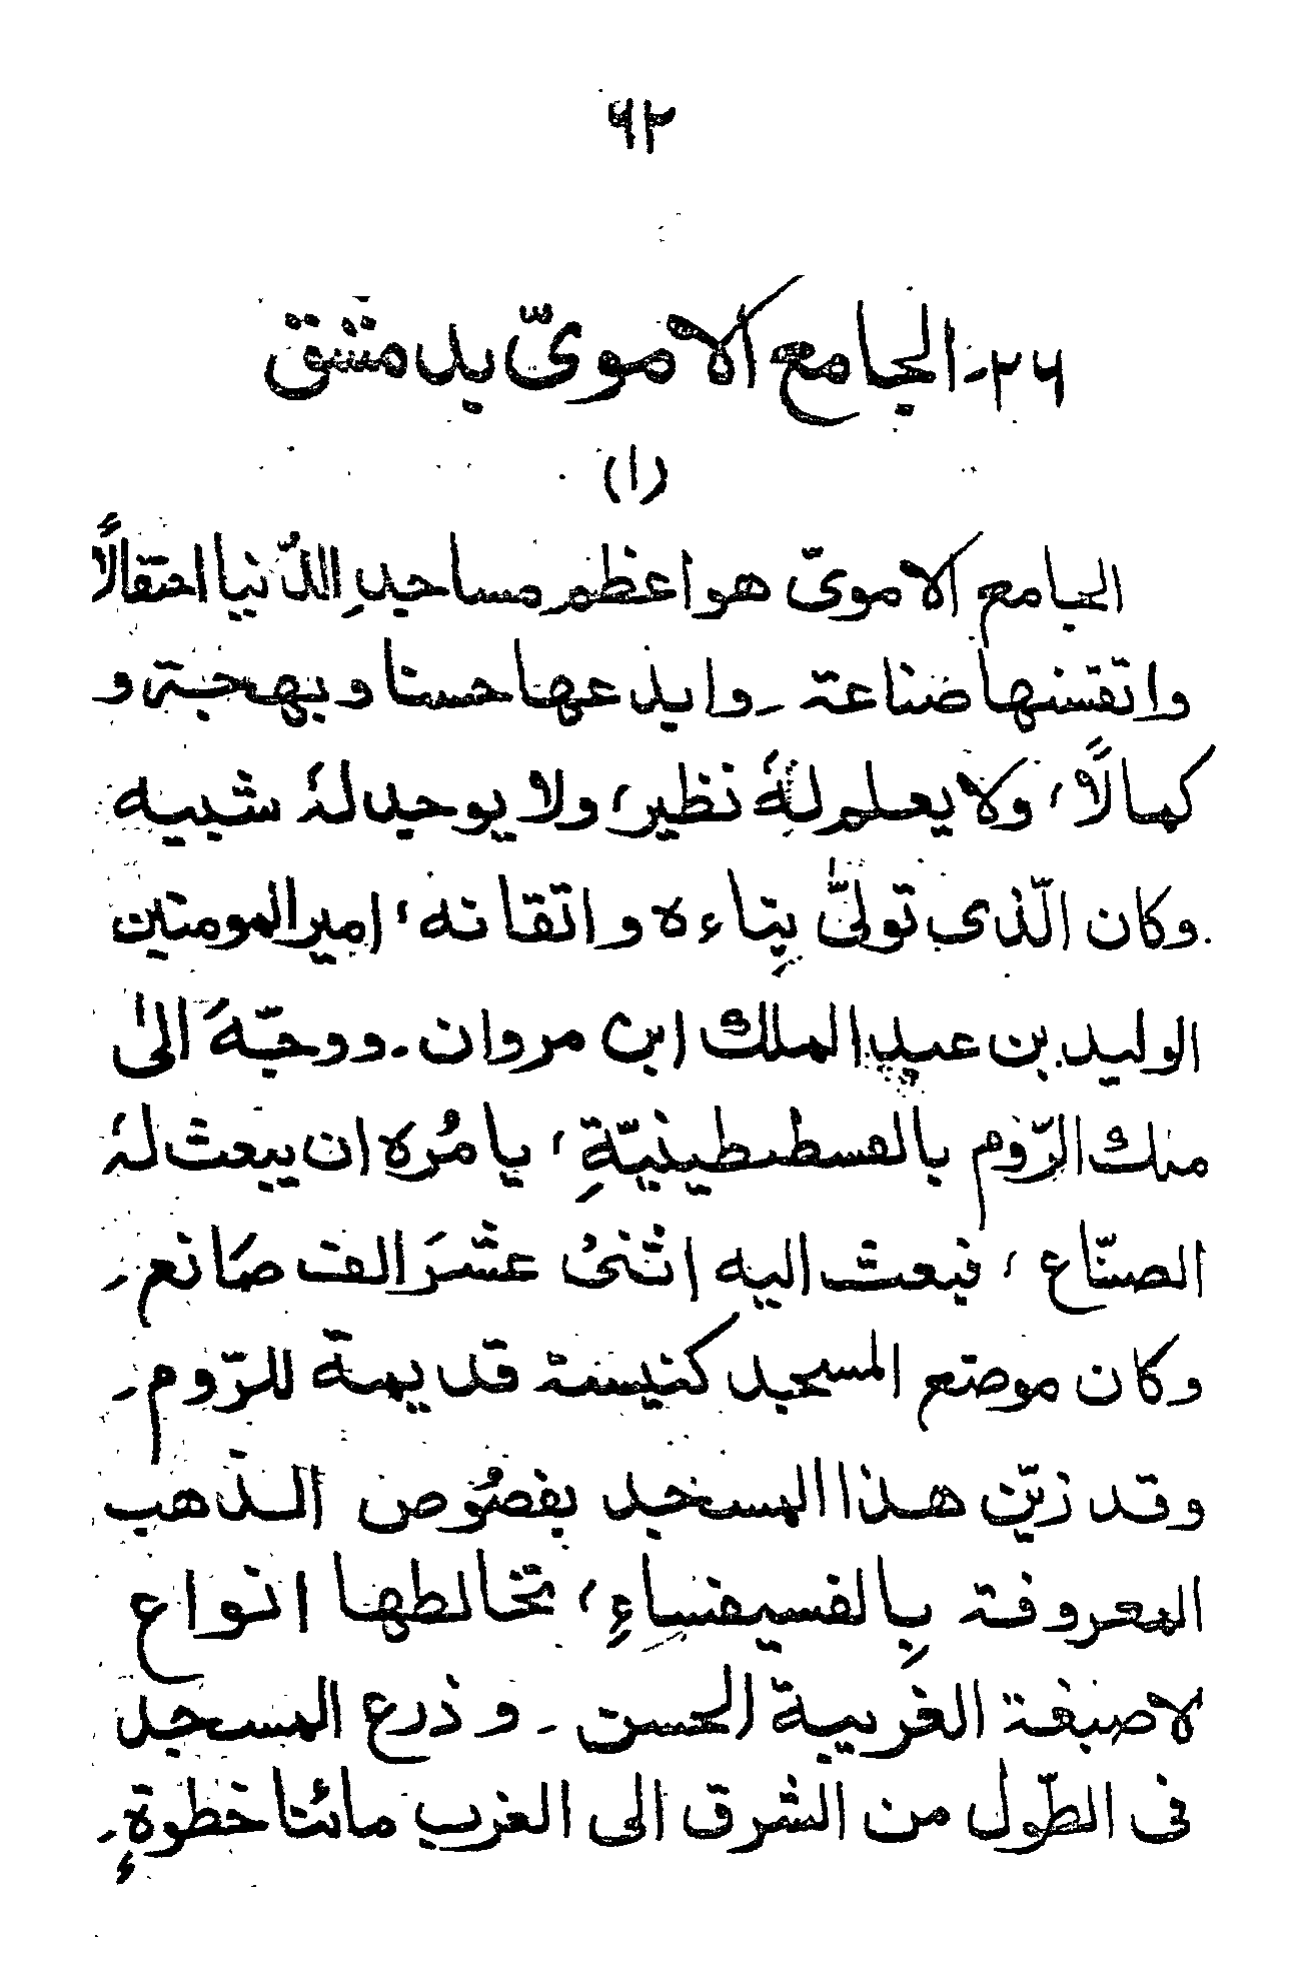 ٦٢
٢٦- الجامع الاموىّ بدمشق
(١)
الجامع الاموىّ هو اعظم مساجدِ الدُّنيا احتفالًا
واتقنها صناعة - وابدعها حسنا وبهجة و
كمالًا، ولا يعلم لهٗ نظير، ولا يوجد لهٗ شبيه
وكان الّذى تولّىٰ بِناءه واتقانه، امير المومنين
الوليد بن عبد الملك ابن مروان - ووجّهَ الىٰ
ملك الرّوم بالقسطنطينيّةِ، يامُره ان يبعث لهٗ
الصنّاع، فبعث اليه اثنىْ عشَرَ الف صَانع -
وكان موضع المسجد كنيسة قديمة للرّوم -
وقد زيّن هذا المسجد بفصُوص الذهب
المعروفة بِالفسيفساءِ، تخالطها انواع
الاصبغة الغريبة الحسن - وذرع المسجد
فى الطّول من الشرق الى الغرب مائتا خطوةٍ -